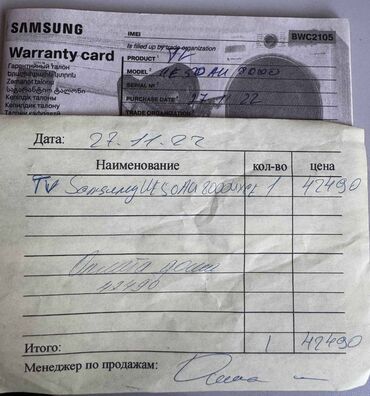 SAMSUNG
IMEI
BWC2105
Warranty card
is filled up by trade organization
Гарантийный талон
PRODUCT TV
Երաշխիքային կտրոն
MODEL UE50AU8000
Zəmanət talonu
SERIAL №
საგარანტიო ტალონი
PURCHASE DATE 27.11.22
Кепілдік талоны
TRADE ORGANIZATION
Кепилдик талону
Дата: 27.11.22
Наименование кол-во цена
TV Samsung UE50AU8000 1 42490
Оплата
42490
Итого: 1 42490
Менеджер по продажам: